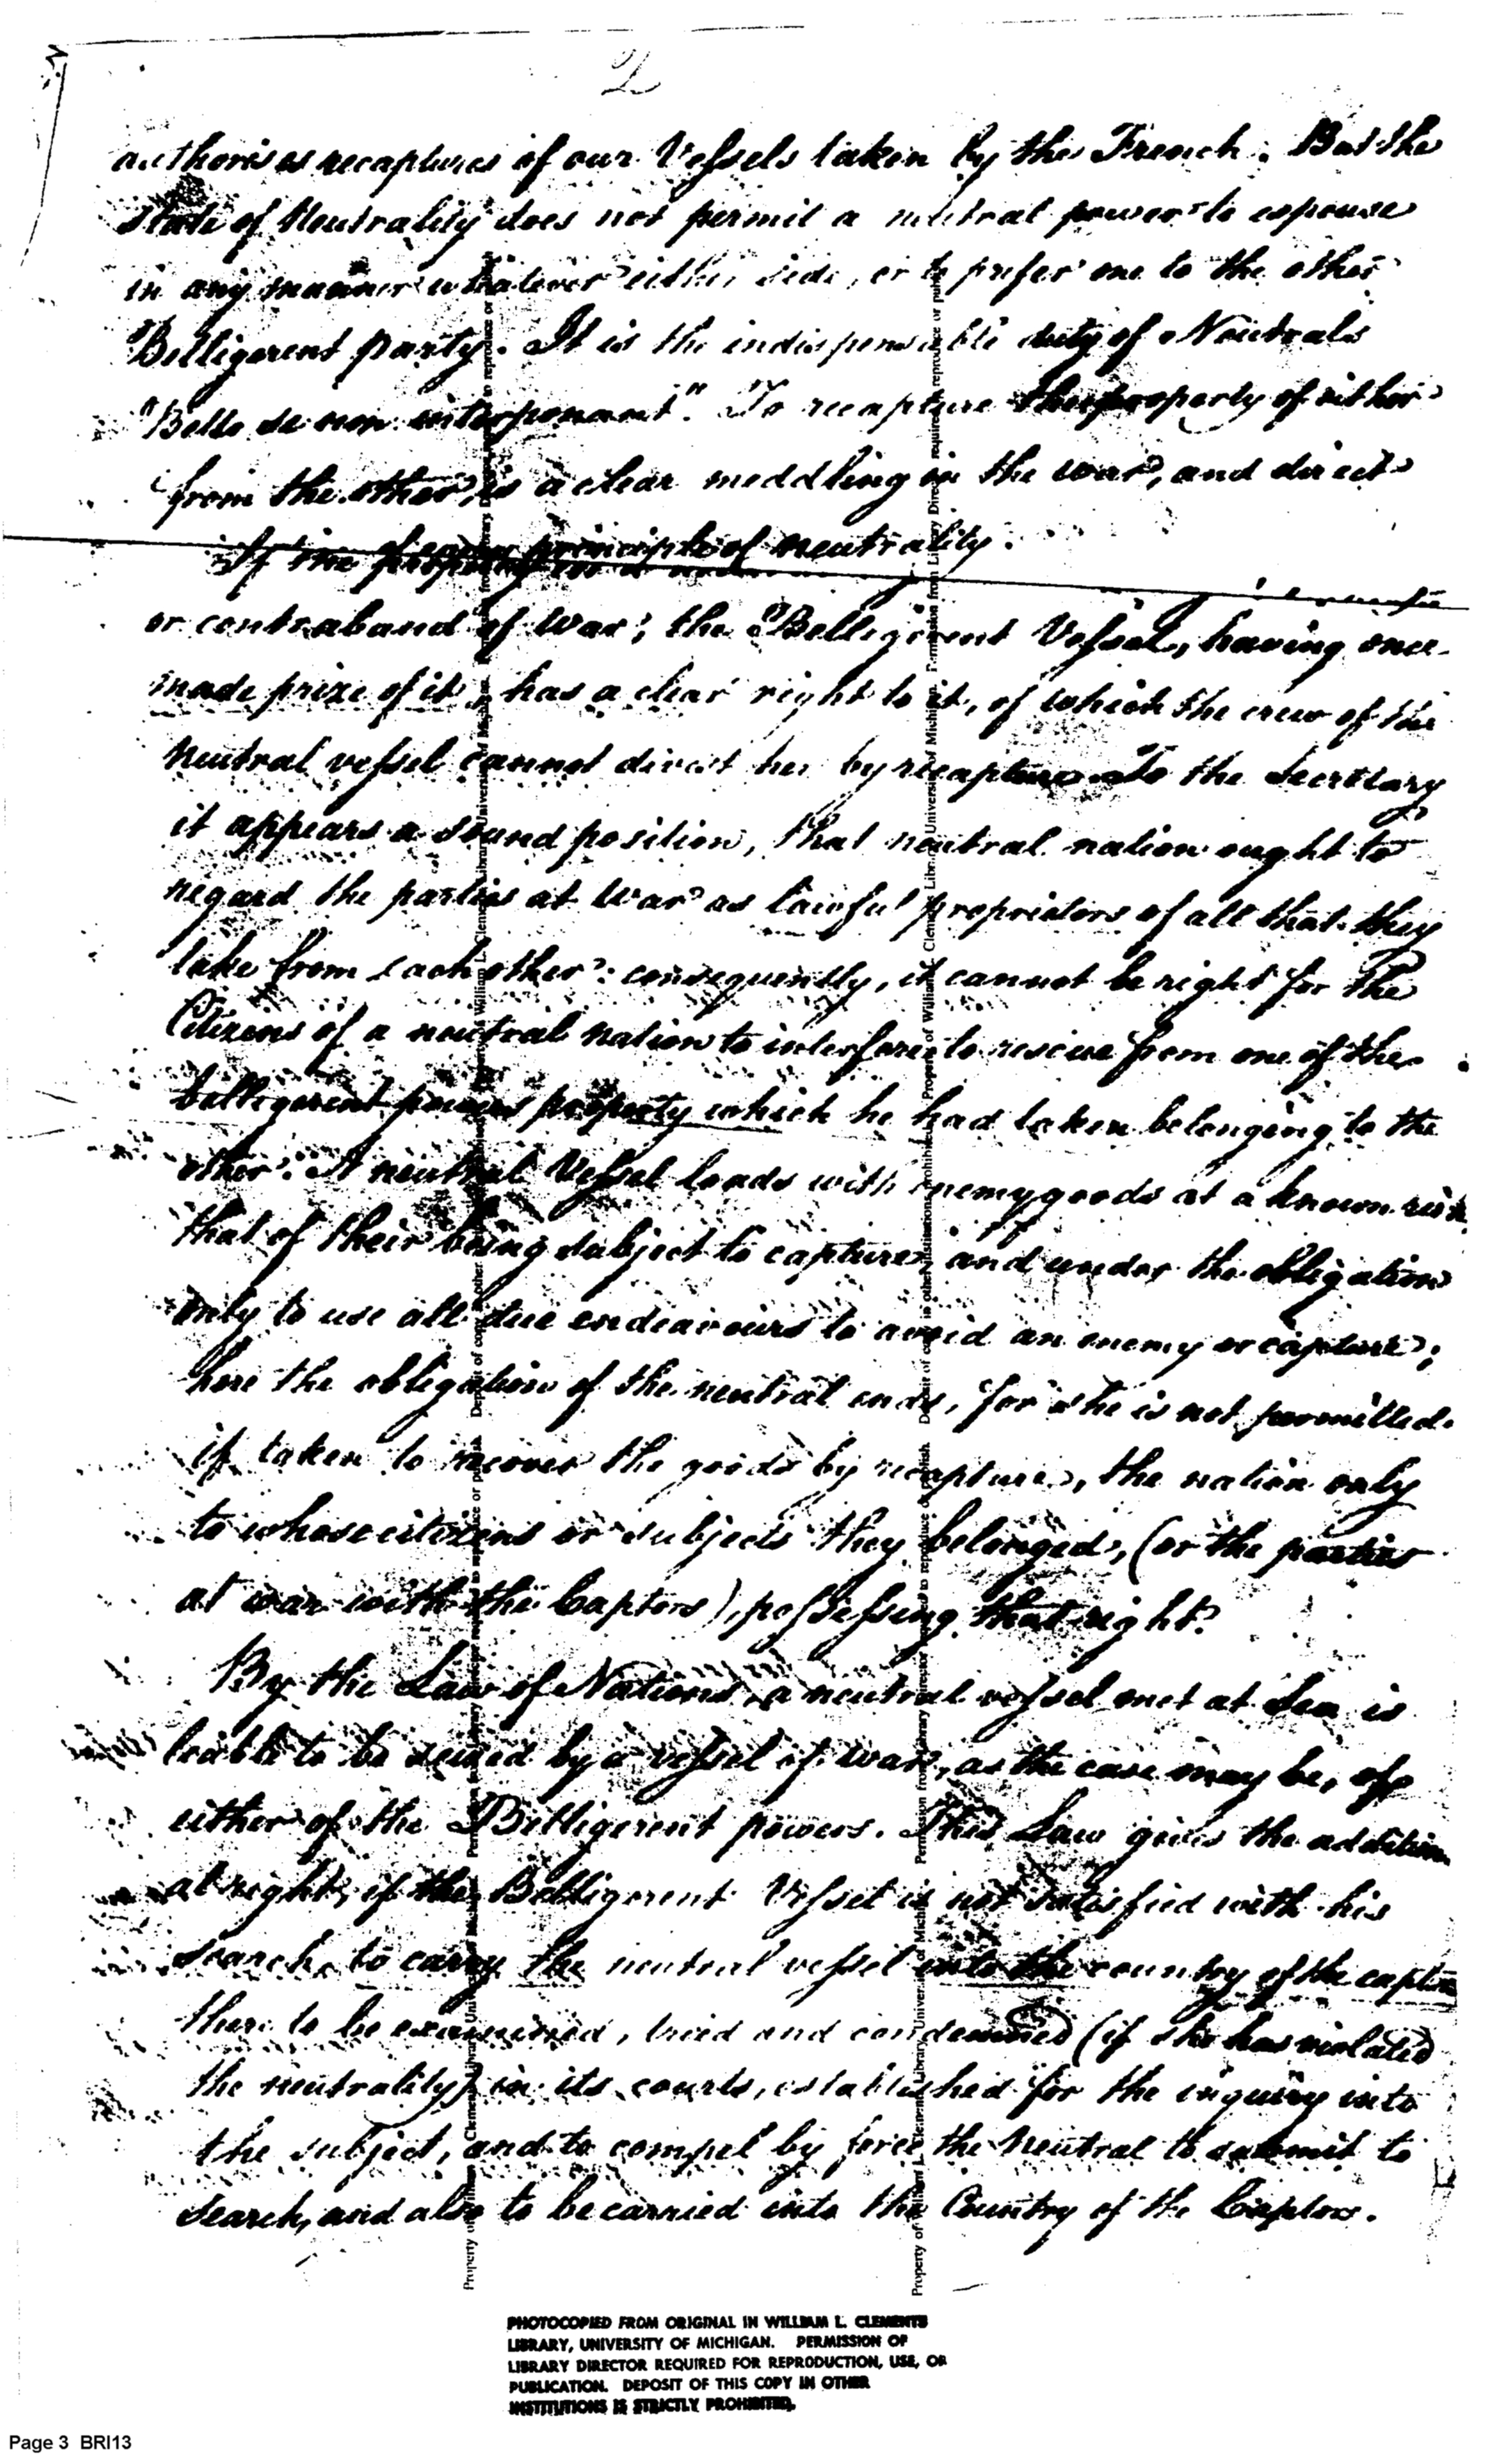 2
authorises recaptures of our Vessels taken by the French. But the
state of Neutrality does not permit a neutral power to espouse
in any manner whatever either side, or to prefer one to the other
Belligerent party. It is the indispensable duty of Neutrals
"Bello se non interponant". To recapture the property of either
from the other, is a clear meddling in the war, and direct
principle of neutrality.
If the
or contraband of War; the Belligerent Vessel, having once
made prize of it, has a clear right to it, of which the crew of the
neutral vessel cannot divest her by recapture. To the Secretary
it appears a sound position, that neutral nation ought to
regard the parties at War as lawful proprietors of all that they
take from each other: consequently, it cannot be right for the
Citizens of a neutral nation to interfere to rescue from one of the
belligerent powers property which he had taken belonging to the
other. A neutral Vessel loads with enemy goods at a known risk
that of their being subject to capture, and under the obligation
only to use all due endeavours to avoid an enemy or capture;
here the obligation of the neutral ends, for she is not permitted
if taken to recover the goods by recapture, the nation only
to whose citizens or subjects they belonged, (or the parties
at war with the Captors), possessing that right.
By the Law of Nations, a neutral vessel met at Sea is
liable to be seized by a vessel of war, as the case may be, of
either of the Belligerent powers. This Law gives the addition
al right, if the Belligerent Vessel is not satisfied with his
search, to carry the neutral vessel into the country of the captor
there to be examined, tried and condemned (if she has violated
the neutrality) in its courts, established for the inquiry into
the subject, and to compel by force the Neutral to submit to
search, and also to be carried into the Country of the Captors.
PHOTOCOPIED FROM ORIGINAL IN WILLIAM L. CLEMENTS
LIBRARY, UNIVERSITY OF MICHIGAN. PERMISSION OF
LIBRARY DIRECTOR REQUIRED FOR REPRODUCTION, USE, OR
PUBLICATION. DEPOSIT OF THIS COPY IN OTHER
INSTITUTIONS IS STRICTLY PROHIBITED.
Page 3 BRI13